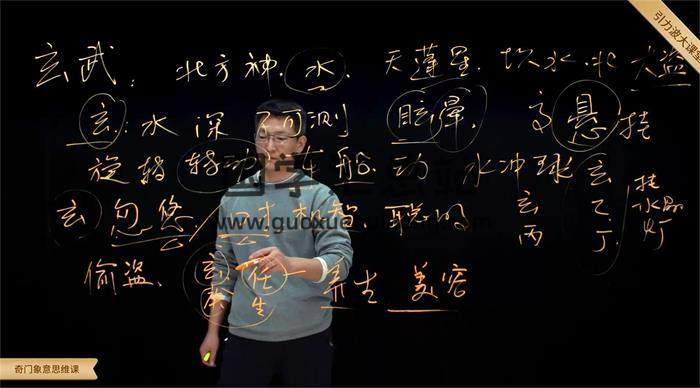 引力波大课堂
玄武：北方神.水.天蓬星.坎水.北 大盗
玄：水深不可测 眩晕.高悬挂
旋转 转动.车船动 水冲球 玄
玄 忽悠 口才 机智.聪明 玄 乙 挂
丙 丁 灯
偷盗、玄 任 一 养生 美容
生
www.guoxue
奇门象意思维课